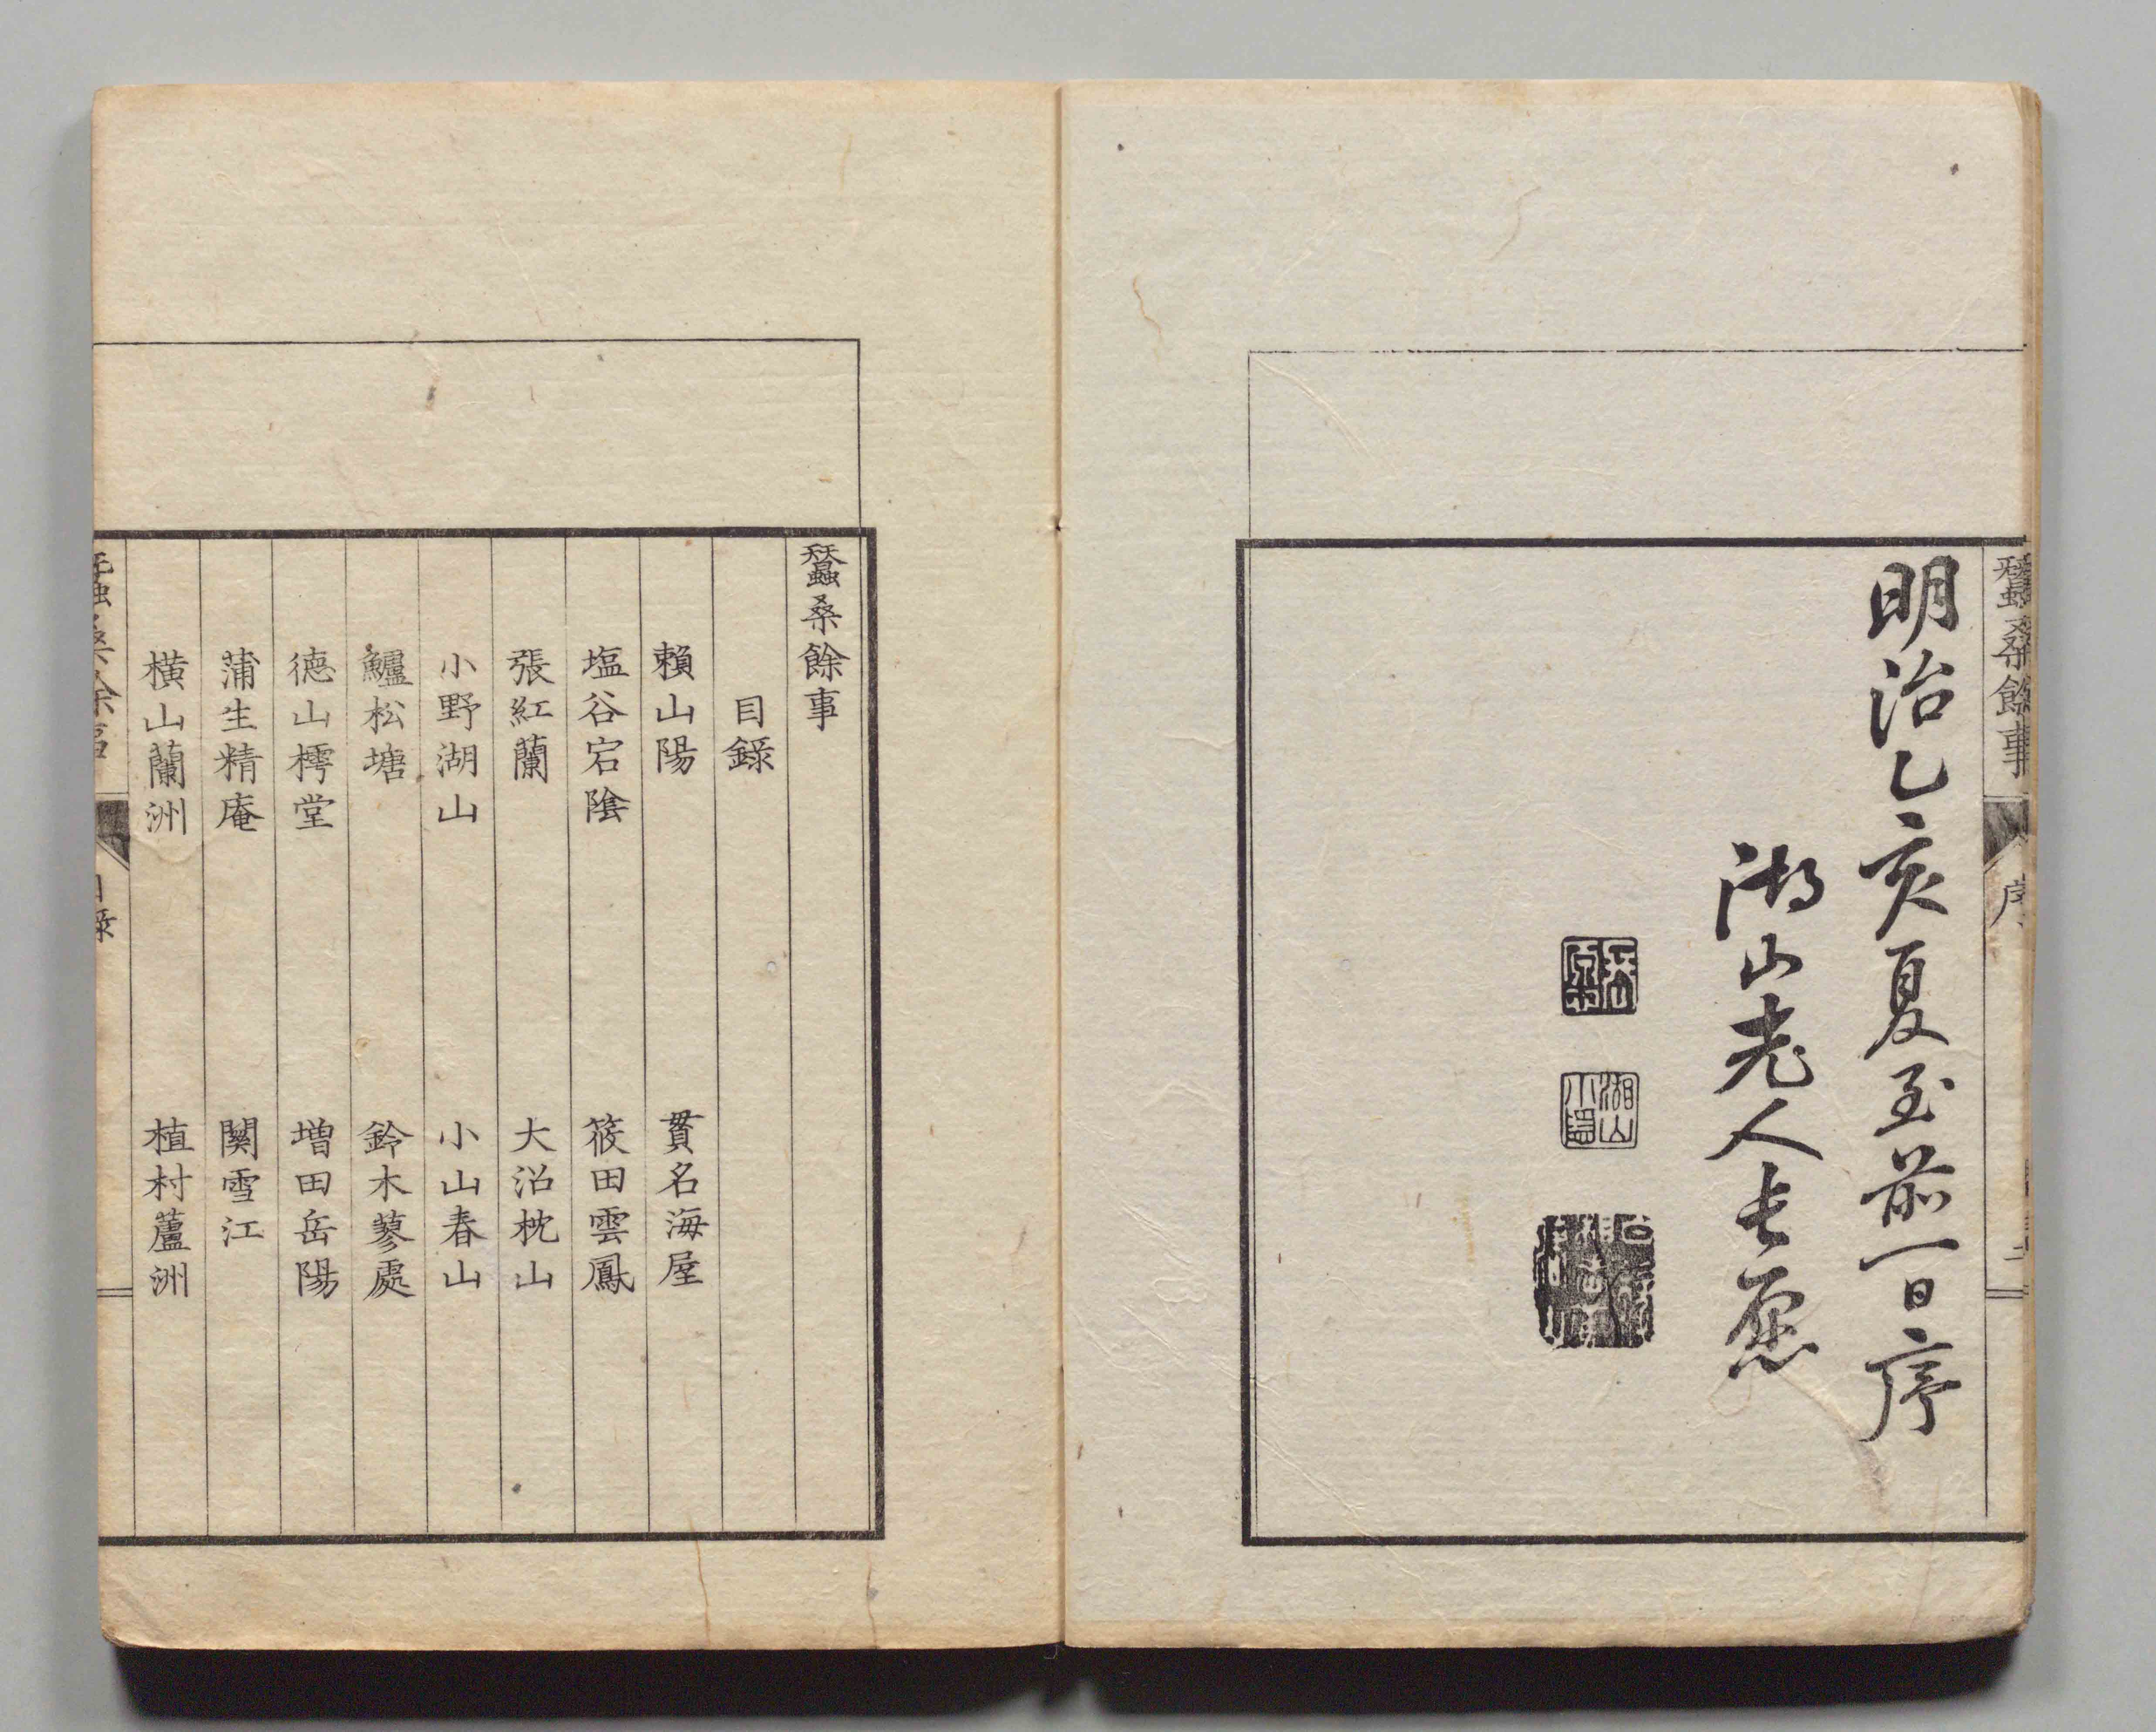 蠶桑餘事
序
明治乙亥夏至前一日序
湖山老人長愿
湖山
小隱
蠶桑餘事
目錄
賴山陽　貫名海屋
塩谷宕陰　筱田雲鳳
張紅蘭　大沼枕山
小野湖山　小山春山
鱸松塘　鈴木蓼處
德山樗堂　增田岳陽
蒲生精庵　關雪江
橫山蘭洲　植村蘆洲
蠶桑餘事
目錄